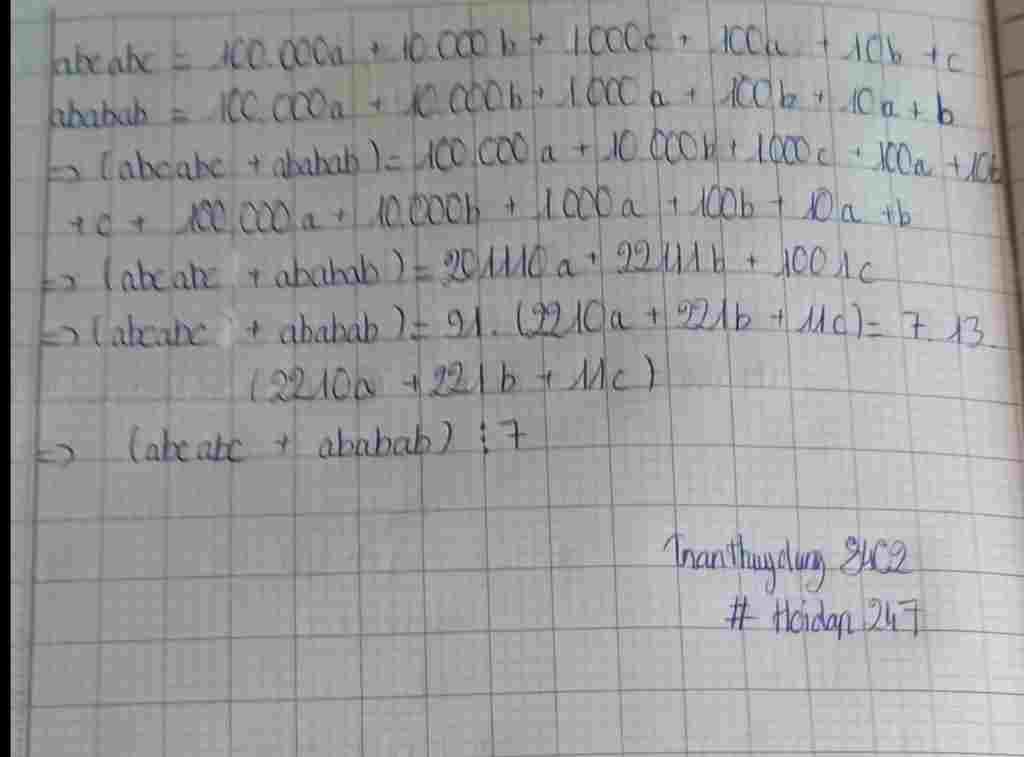 abcabc = 100.000a + 10.000b + 1000c + 100a + 10b + c
ababab = 100.000a + 10.000b + 1000a + 100b + 10a + b
=> (abcabc + ababab) = 100.000a + 10.000b + 1000c + 100a + 10b
+ c + 100.000a + 10.000b + 1000a + 100b + 10a + b
=> (abcabc + ababab) = 201110a + 22111b + 1001c
=> (abcabc + ababab) = 91. (2210a + 221b + 11c) = 7.13
(2210a + 221b + 11c)
=> (abcabc + ababab) ⋮ 7
Tranthuydung
# Hoidap 247